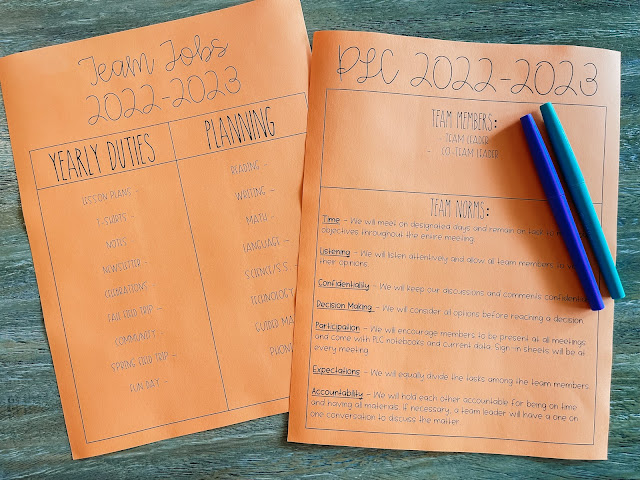 Team Jobs
2022-2023
YEARLY DUTIES
LESSON PLANS -
T-SHIRTS -
NOTES -
NEWSLETTER -
CELEBRATIONS -
FALL FIELD TRIP -
COMMUNITY -
SPRING FIELD TRIP -
FUN DAY -
PLANNING
READING -
WRITING -
MATH -
LANGUAGE -
SCIENCE/S.S. -
TECHNOLOGY
GUIDED
PHONICS
PLC 2022-2023
TEAM MEMBERS:
- TEAM LEADER
- CO-TEAM LEADER
TEAM NORMS:
Time - We will meet on designated days and remain on task to
objectives throughout the entire meeting.
Listening - We will listen attentively and allow all team members to
their opinions.
Confidentiality - We will keep our discussions and comments confidential.
Decision Making - We will consider all options before reaching a decision.
Participation - We will encourage members to be present at all meetings
and come with PLC notebooks and current data. Sign-in sheets will be at
every meeting.
Expectations - We will equally divide the tasks among the team members.
Accountability - We will hold each other accountable for being on time
and having all materials. If necessary, a team leader will have a one on
one conversation to discuss the matter.